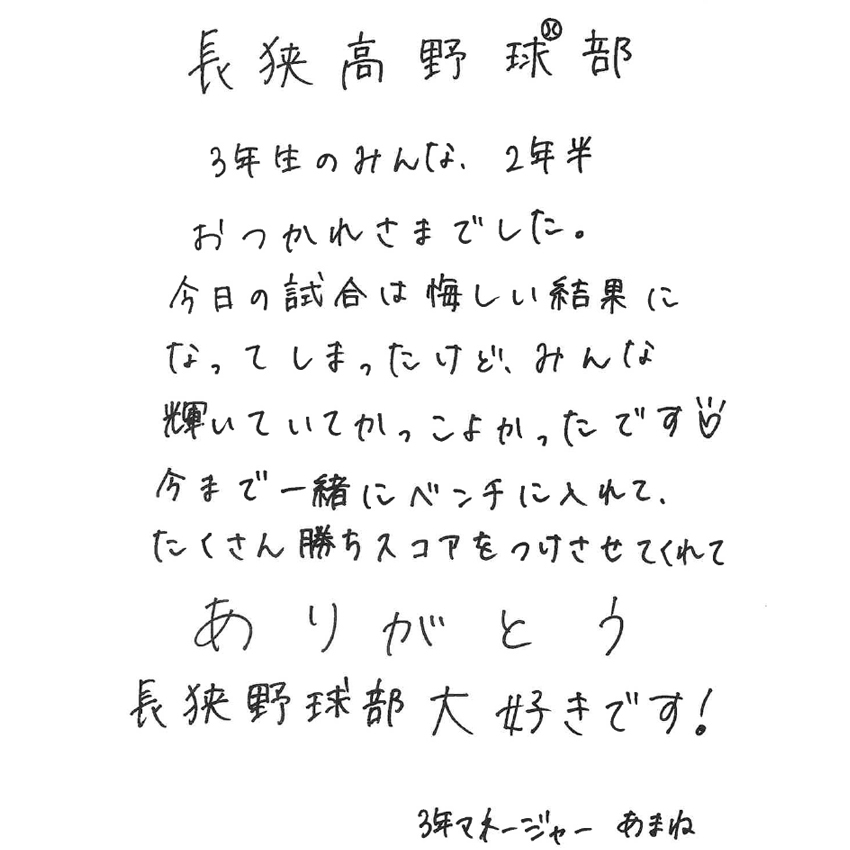 長狭高野球部
3年生のみんな、2年半
おつかれさまでした。
今日の試合は悔しい結果に
なってしまったけど、みんな
輝いていてかっこよかったです
今まで一緒にベンチに入れて、
たくさん勝ちスコアをつけさせてくれて
ありがとう
長狭野球部大好きです!
3年マネージャー あまね